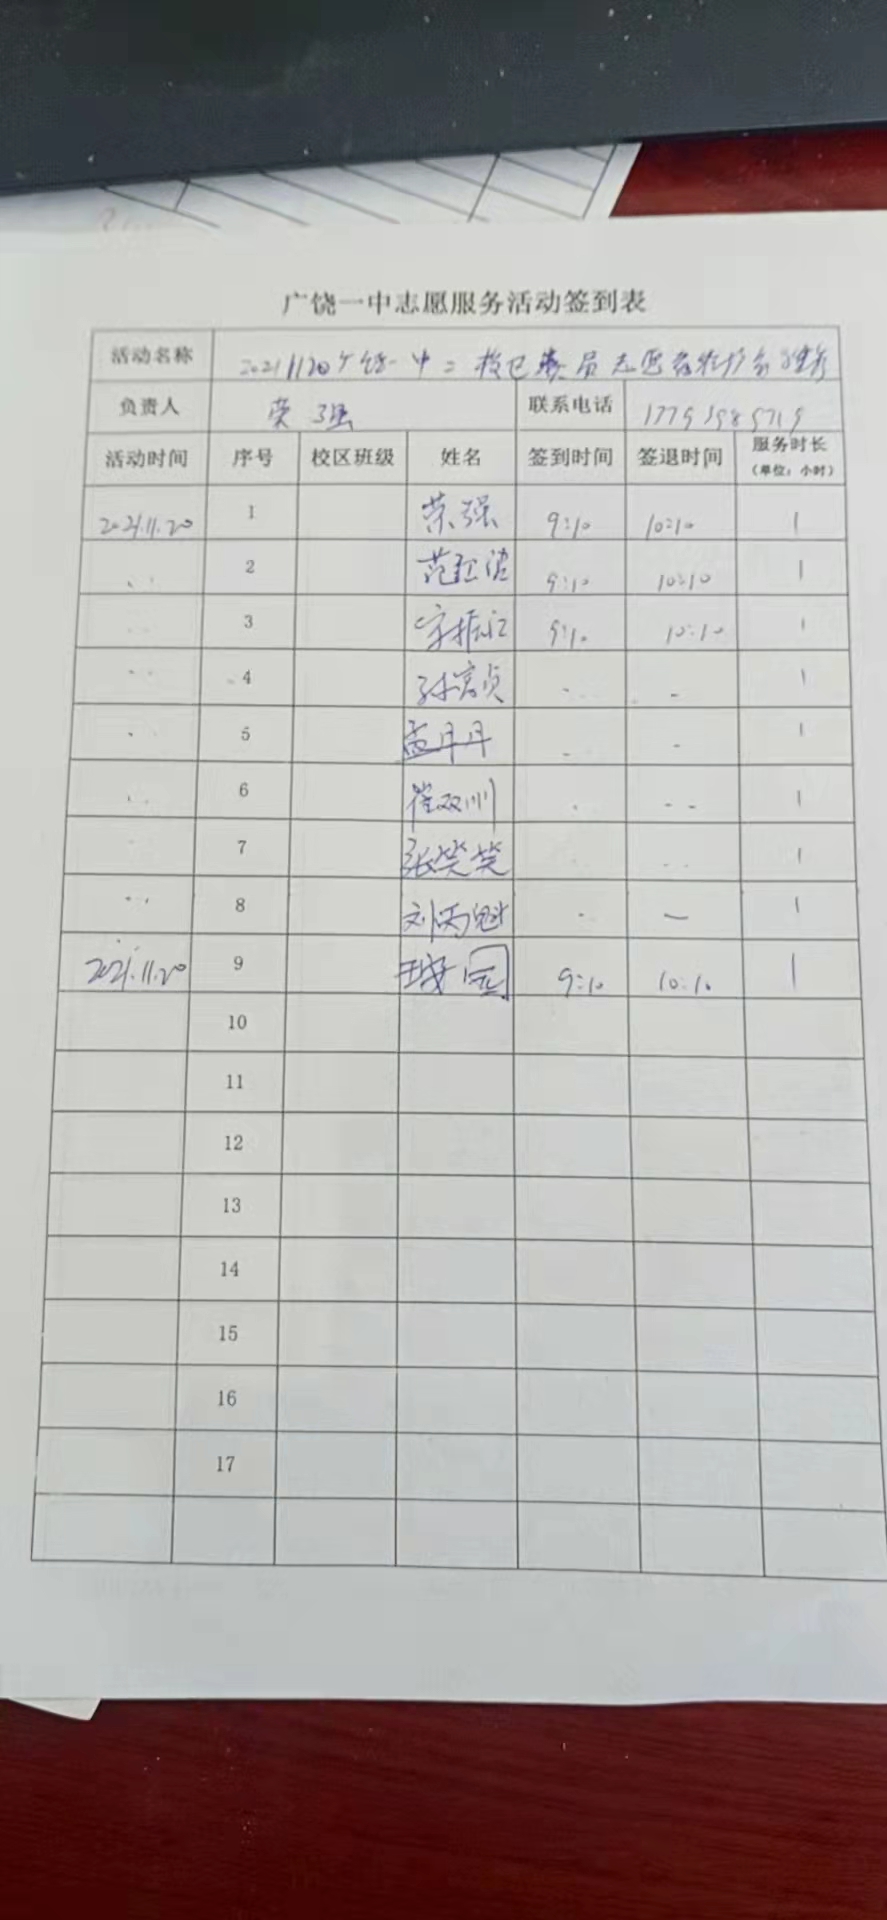 广饶一中志愿服务活动签到表
活动名称 20211120广饶一中二校 员志愿
负责人 荣强 联系电话
活动时间 序号 校区班级 姓名 签到时间 签退时间 服务时长(单位：小时)
2021.11.20 1 荣强 9:10 10:10 1
〃 2 范 9:10 10:10 1
3 宋振江 9:10 10:10 1
〃 4 孙 贞 1
〃 5 孟丹丹 1
〃 6 崔双川 1
7 张笑笑 1
〃 8 刘丙魁 1
2021.11.20 9 9:10 10:10 1
10
11
12
13
14
15
16
17